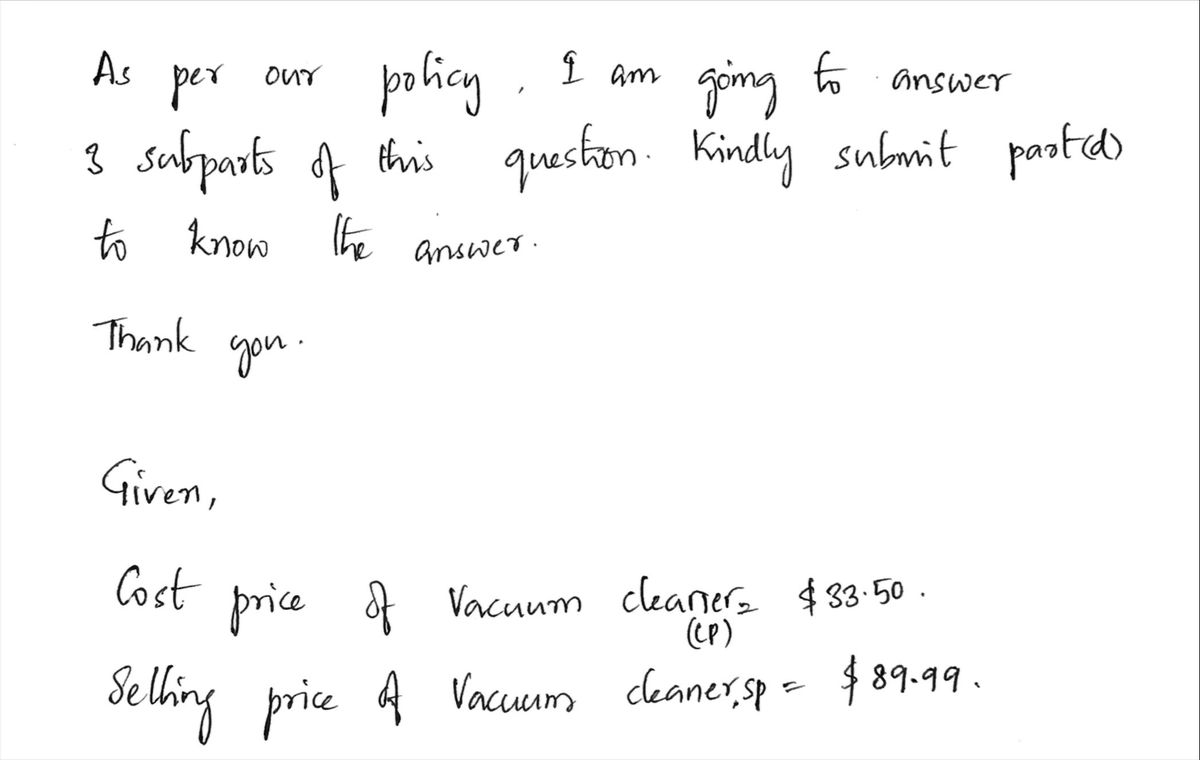 As per our policy, I am going to answer
3 subparts of this question. Kindly submit part(d)
to know the answer.
Thank you.
Given,
Cost price of Vacuum cleaner = $33.50.
(CP)
Selling price of Vacuum cleaner, sp = $89.99.